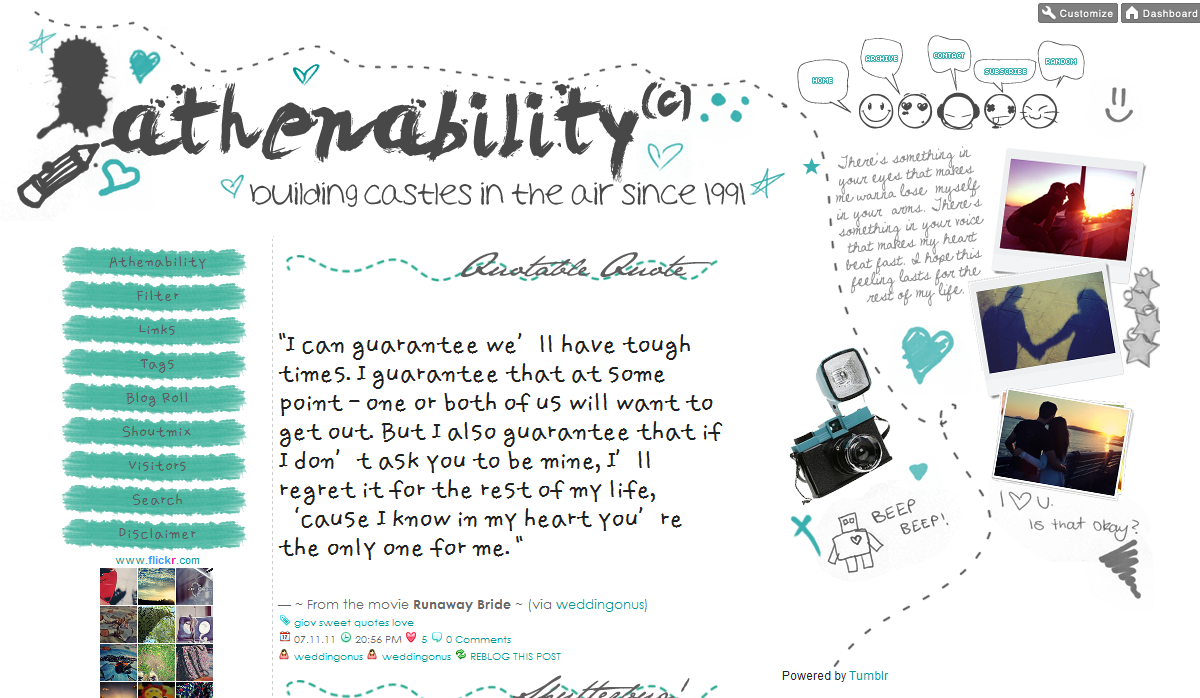 Customize
Dashboard
HOME
ARCHIVE
CONTACT
SUBSCRIBE
RANDOM
athenability(c)
building castles in the air since 1991
There's something in
your eyes that makes
me wanna lose myself
in your arms. There's
something in your voice
that makes my heart
beat fast. I hope this
feeling lasts for the
rest of my life.
Athenability
Filter
Links
Tags
Blog Roll
Shoutmix
Visitors
Search
Disclaimer
www.flickr.com
Quotable Quote
"I can guarantee we'll have tough
times. I guarantee that at some
point - one or both of us will want to
get out. But I also guarantee that if
I don't ask you to be mine, I'll
regret it for the rest of my life,
'cause I know in my heart you're
the only one for me. "
— ~ From the movie Runaway Bride ~ (via weddingonus)
giov sweet quotes love
07.11.11 20:56 PM 5 0 Comments
weddingonus weddingonus REBLOG THIS POST
Shutterbug!
BEEP
BEEP!
I U.
Is that okay?
Powered by Tumblr